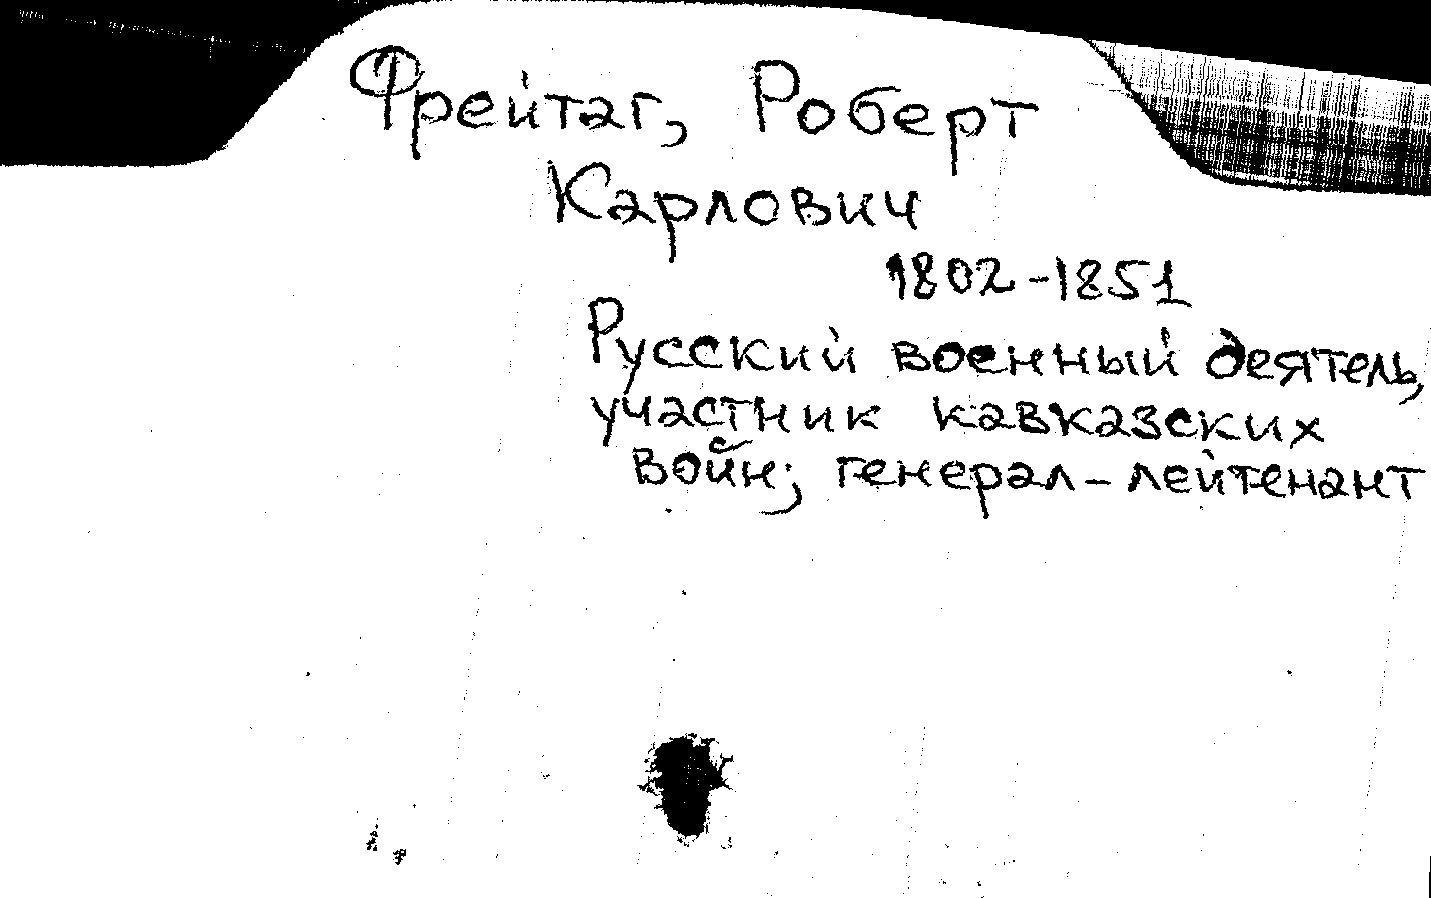 Фрейтаг, Роберт
Карлович
1802-1851
Русский военный деятель,
участник кавказских
войн; генерал-лейтенант